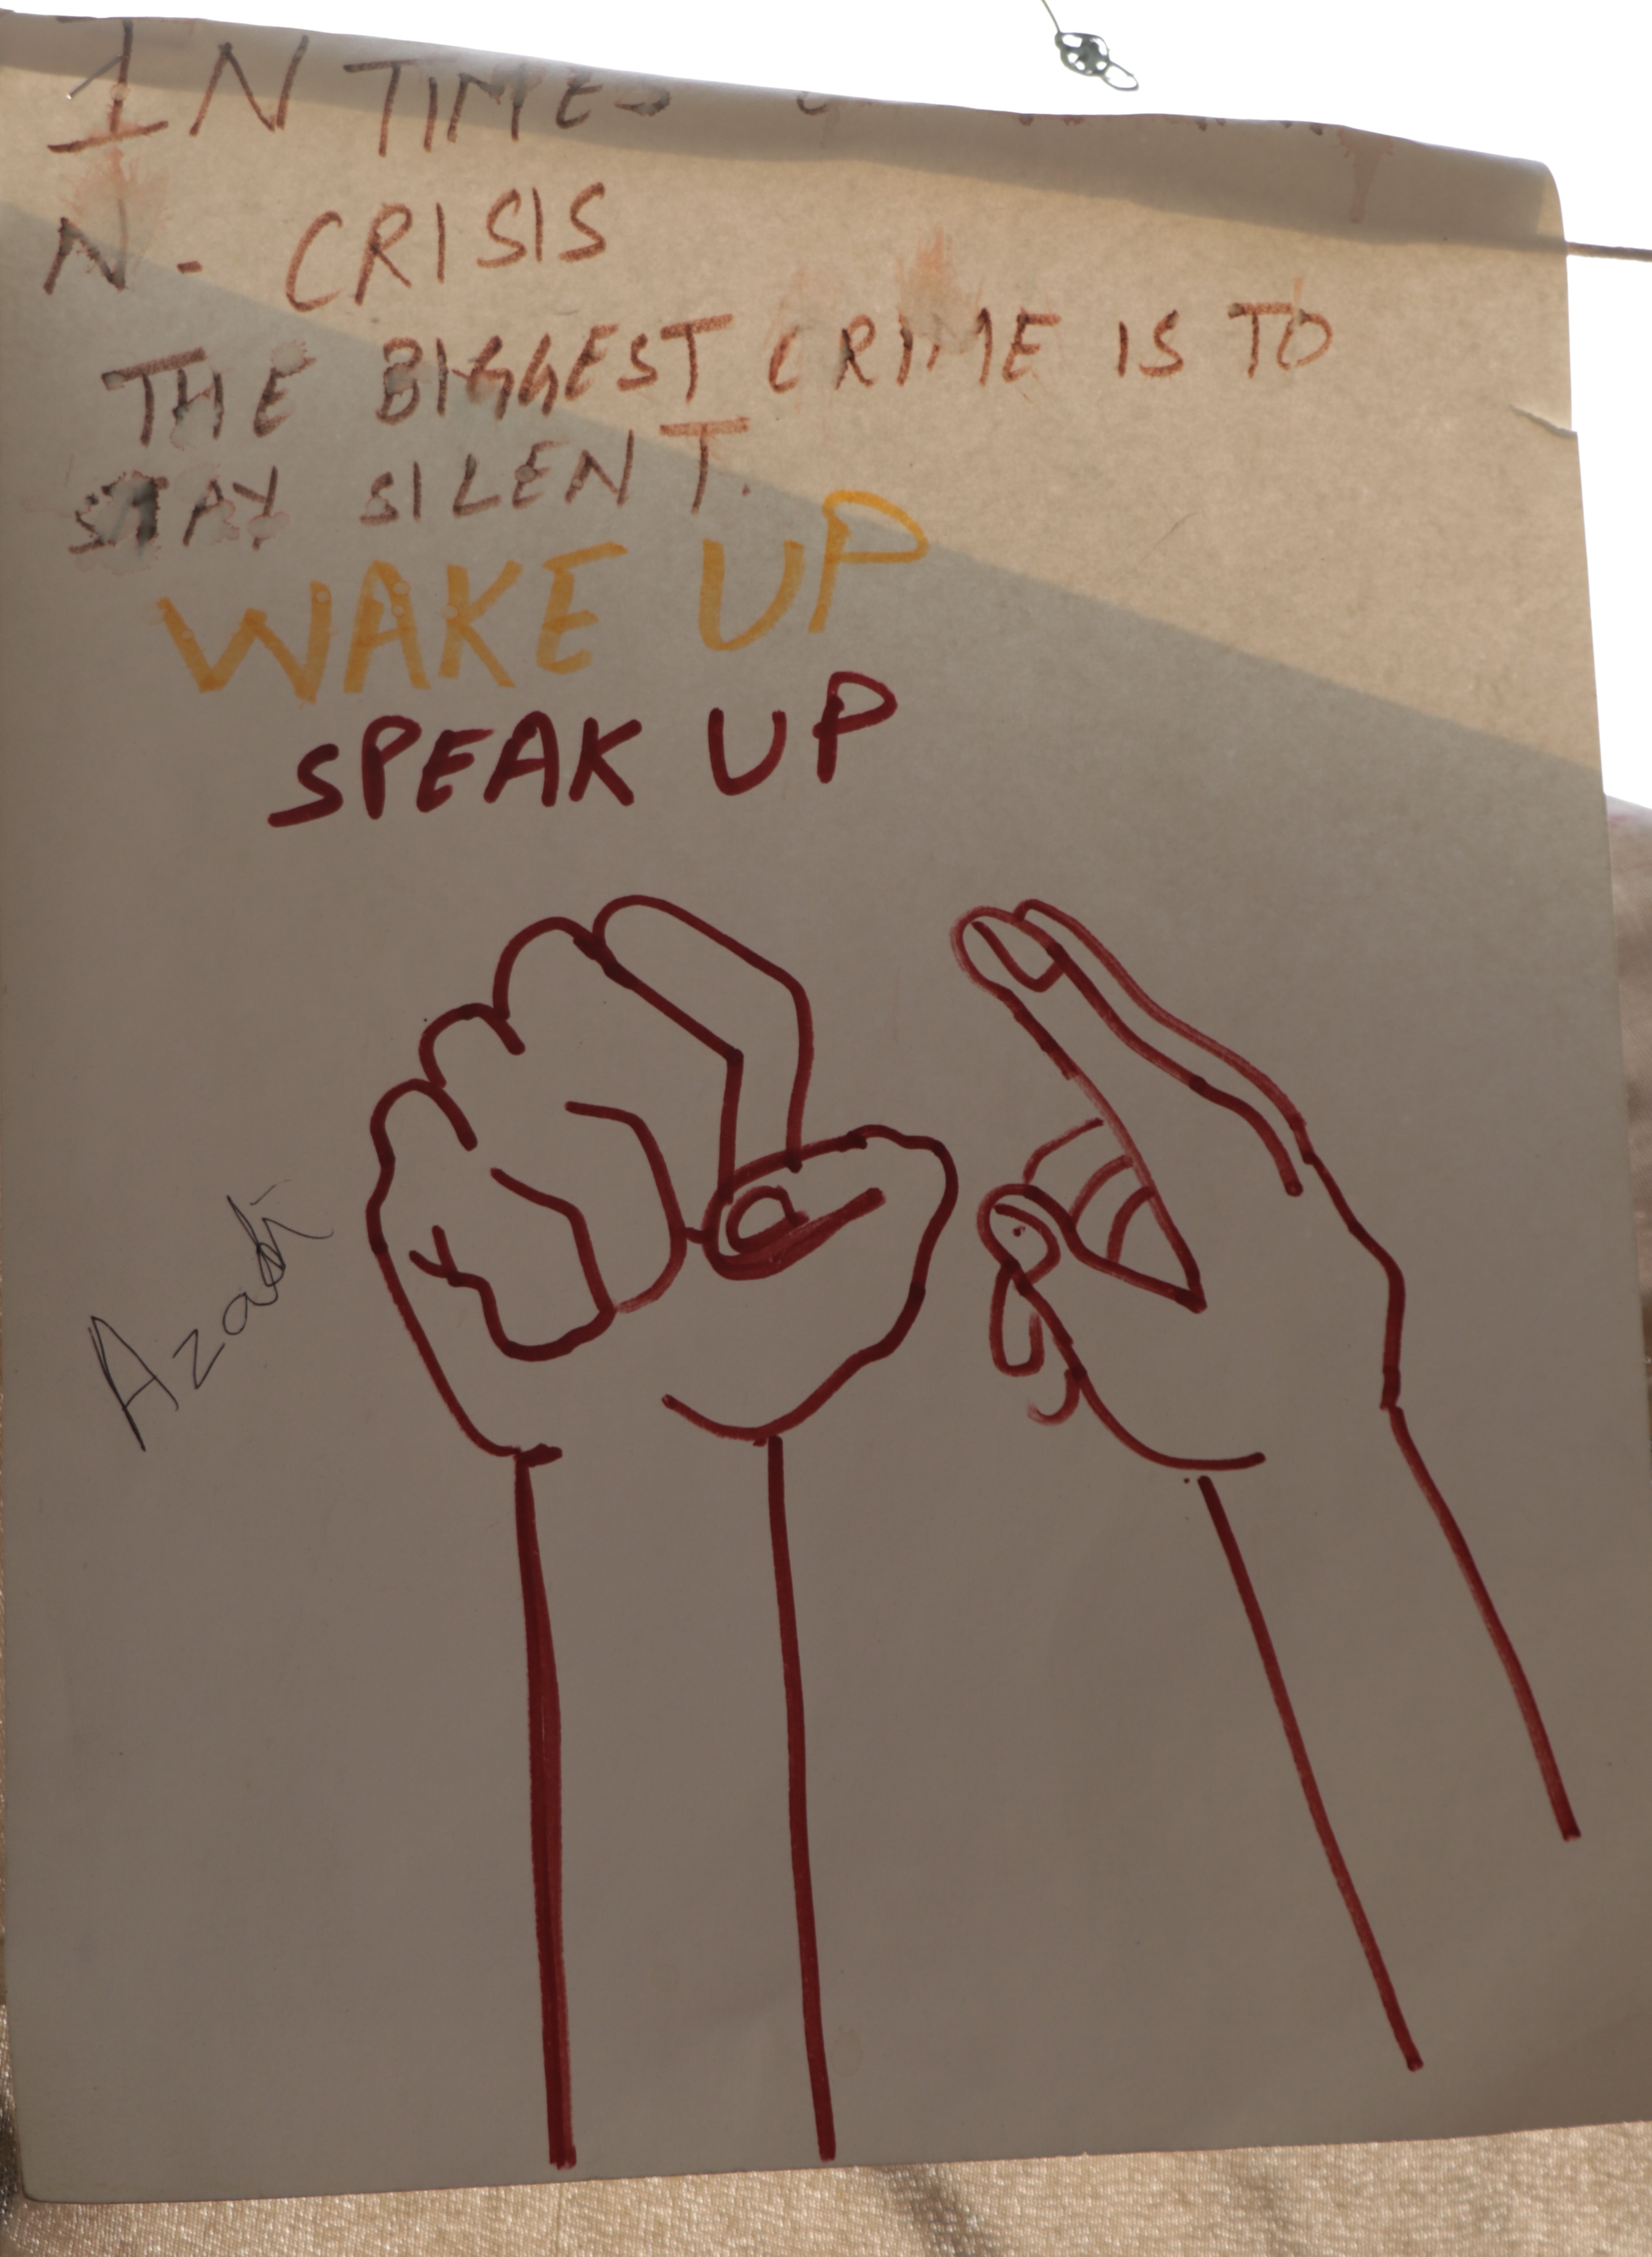 IN TIMES
N- CRISIS
THE BIGGEST CRIME IS TO
STAY SILENT.
WAKE UP
SPEAK UP
Azadi